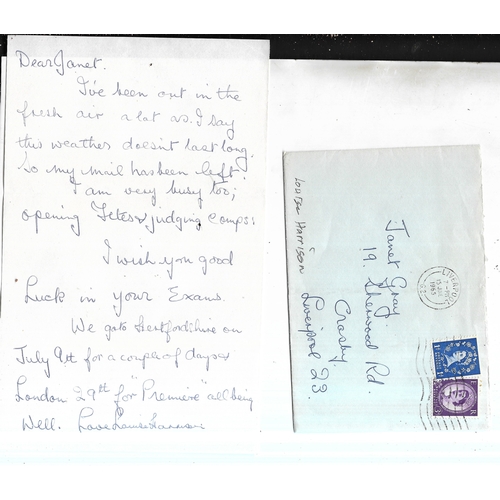 Dear Janet.
I've been out in the
fresh air a lot as. I say
this weather doesn't last long,
so my mail has been left!
I am very busy too;
opening Fetes & judging comps:
I wish you good
Luck in your Exams.
We go to Hertfordshire on
July 9th for a couple of days &
London 29th for "Premiere" all being
Well. Love Louise Harrison
LOUISE HARRISON
Janet Gray.
19. Sherwood Rd.
Crosby.
Liverpool 23.
LIVERPOOL